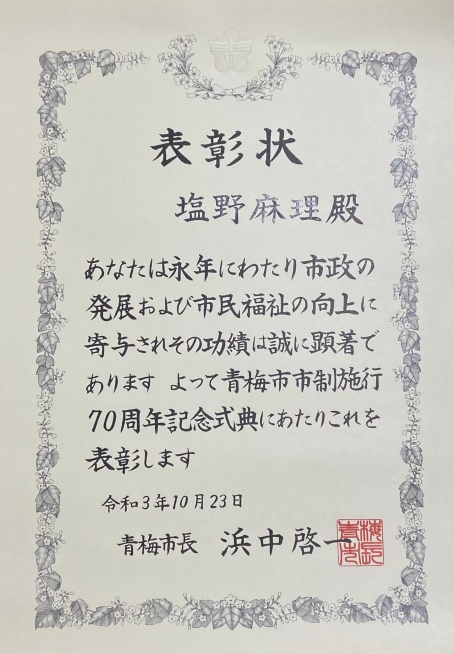 表彰状
塩野麻理殿
あなたは永年にわたり市政の
発展および市民福祉の向上に
寄与されその功績は誠に顕著で
あります よって青梅市市制施行
70周年記念式典にあたりこれを
表彰します
令和3年10月23日
青梅市長 浜中啓一
青梅市長